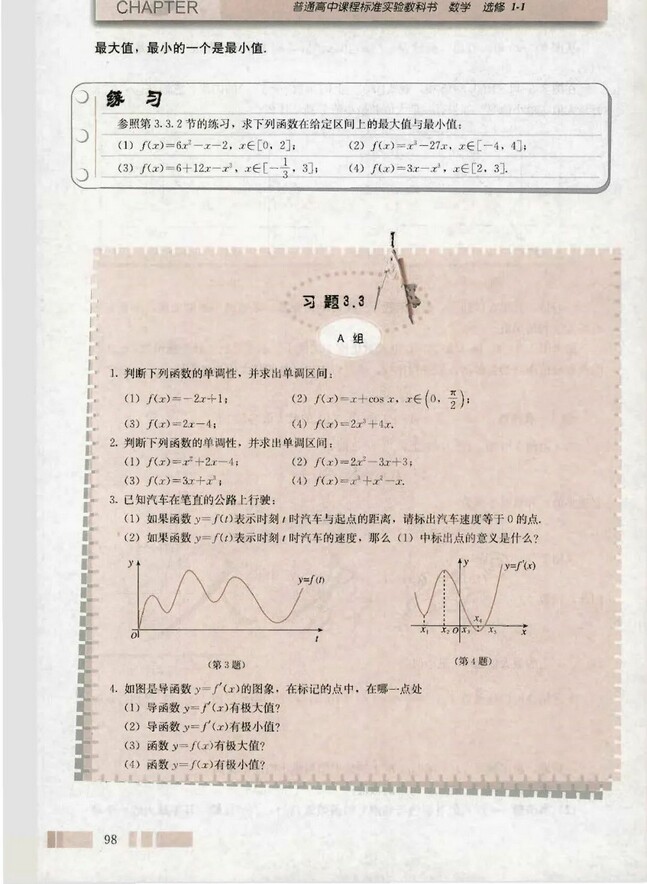 CHAPTER
普通高中课程标准实验教科书 数学 选修 1-1
最大值，最小的一个是最小值.
练 习
参照第 3.3.2 节的练习，求下列函数在给定区间上的最大值与最小值：
(1) f(x)=6x²-x-2，x∈[0，2]； (2) f(x)=x³-27x，x∈[-4，4]；
(3) f(x)=6+12x-x³，x∈[-1/3，3]； (4) f(x)=3x-x³，x∈[2，3].
习 题 3.3
A 组
1. 判断下列函数的单调性，并求出单调区间：
(1) f(x)=-2x+1； (2) f(x)=x+cos x，x∈(0，π/2)；
(3) f(x)=2x-4； (4) f(x)=2x³+4x.
2. 判断下列函数的单调性，并求出单调区间：
(1) f(x)=x²+2x-4； (2) f(x)=2x²-3x+3；
(3) f(x)=3x+x³； (4) f(x)=x³+x²-x.
3. 已知汽车在笔直的公路上行驶：
(1) 如果函数 y=f(t)表示时刻 t 时汽车与起点的距离，请标出汽车速度等于 0 的点.
(2) 如果函数 y=f(t)表示时刻 t 时汽车的速度，那么（1）中标出点的意义是什么？
y
y=f(t)
O
t
（第 3 题）
y
y=f′(x)
x₄
x₁ x₂ O x₃ x₅ x
（第 4 题）
4. 如图是导函数 y=f′(x)的图象，在标记的点中，在哪一点处
(1) 导函数 y=f′(x)有极大值？
(2) 导函数 y=f′(x)有极小值？
(3) 函数 y=f(x)有极大值？
(4) 函数 y=f(x)有极小值？
98